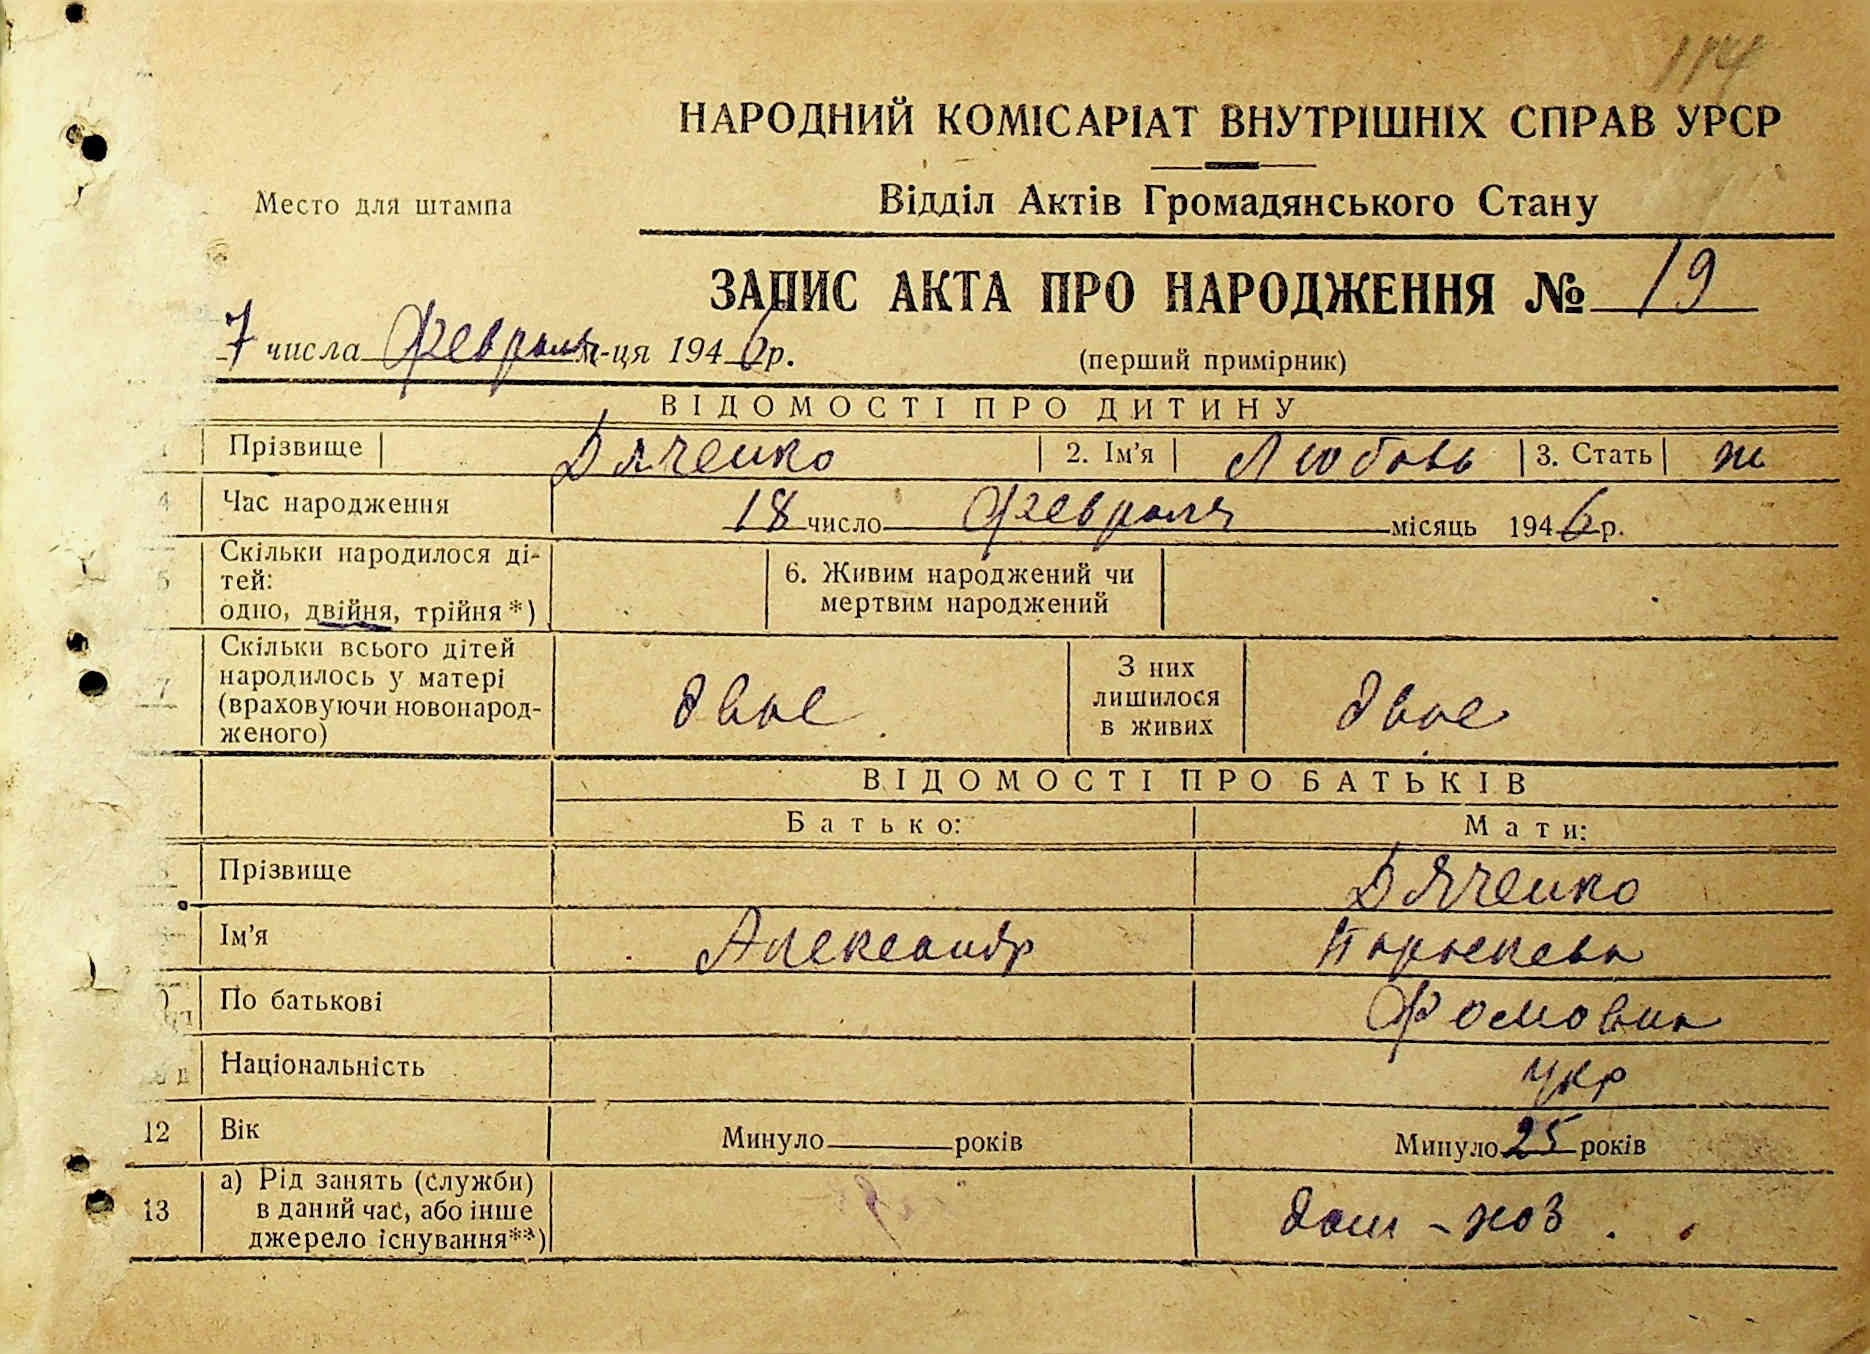 114
НАРОДНИЙ КОМІСАРІАТ ВНУТРІШНІХ СПРАВ УРСР
Место для штампа
Відділ Актів Громадянського Стану
ЗАПИС АКТА ПРО НАРОДЖЕННЯ № 19
7 числа Февраля м-ця 1946 р.
(перший примірник)
ВІДОМОСТІ ПРО ДИТИНУ
Прізвище Дяченко 2. Ім'я Любовь 3. Стать ж
4 Час народження 18 число Февраля місяць 1946 р.
5 Скільки народилося ді-
тей:
одно, двійня, трійня *)
6. Живим народжений чи
мертвим народжений
7 Скільки всього дітей
народилось у матері
(враховуючи новонарод-
женого)
двое
З них
лишилося
в живих
двое
ВІДОМОСТІ ПРО БАТЬКІВ
Батько: Мати:
Прізвище Дяченко
Ім'я Александр
По батькові Фомовна
Національність укр
12 Вік Минуло років Минуло 25 років
13 а) Рід занять (служби)
в даний час, або інше
джерело існування**)
дом-хоз.